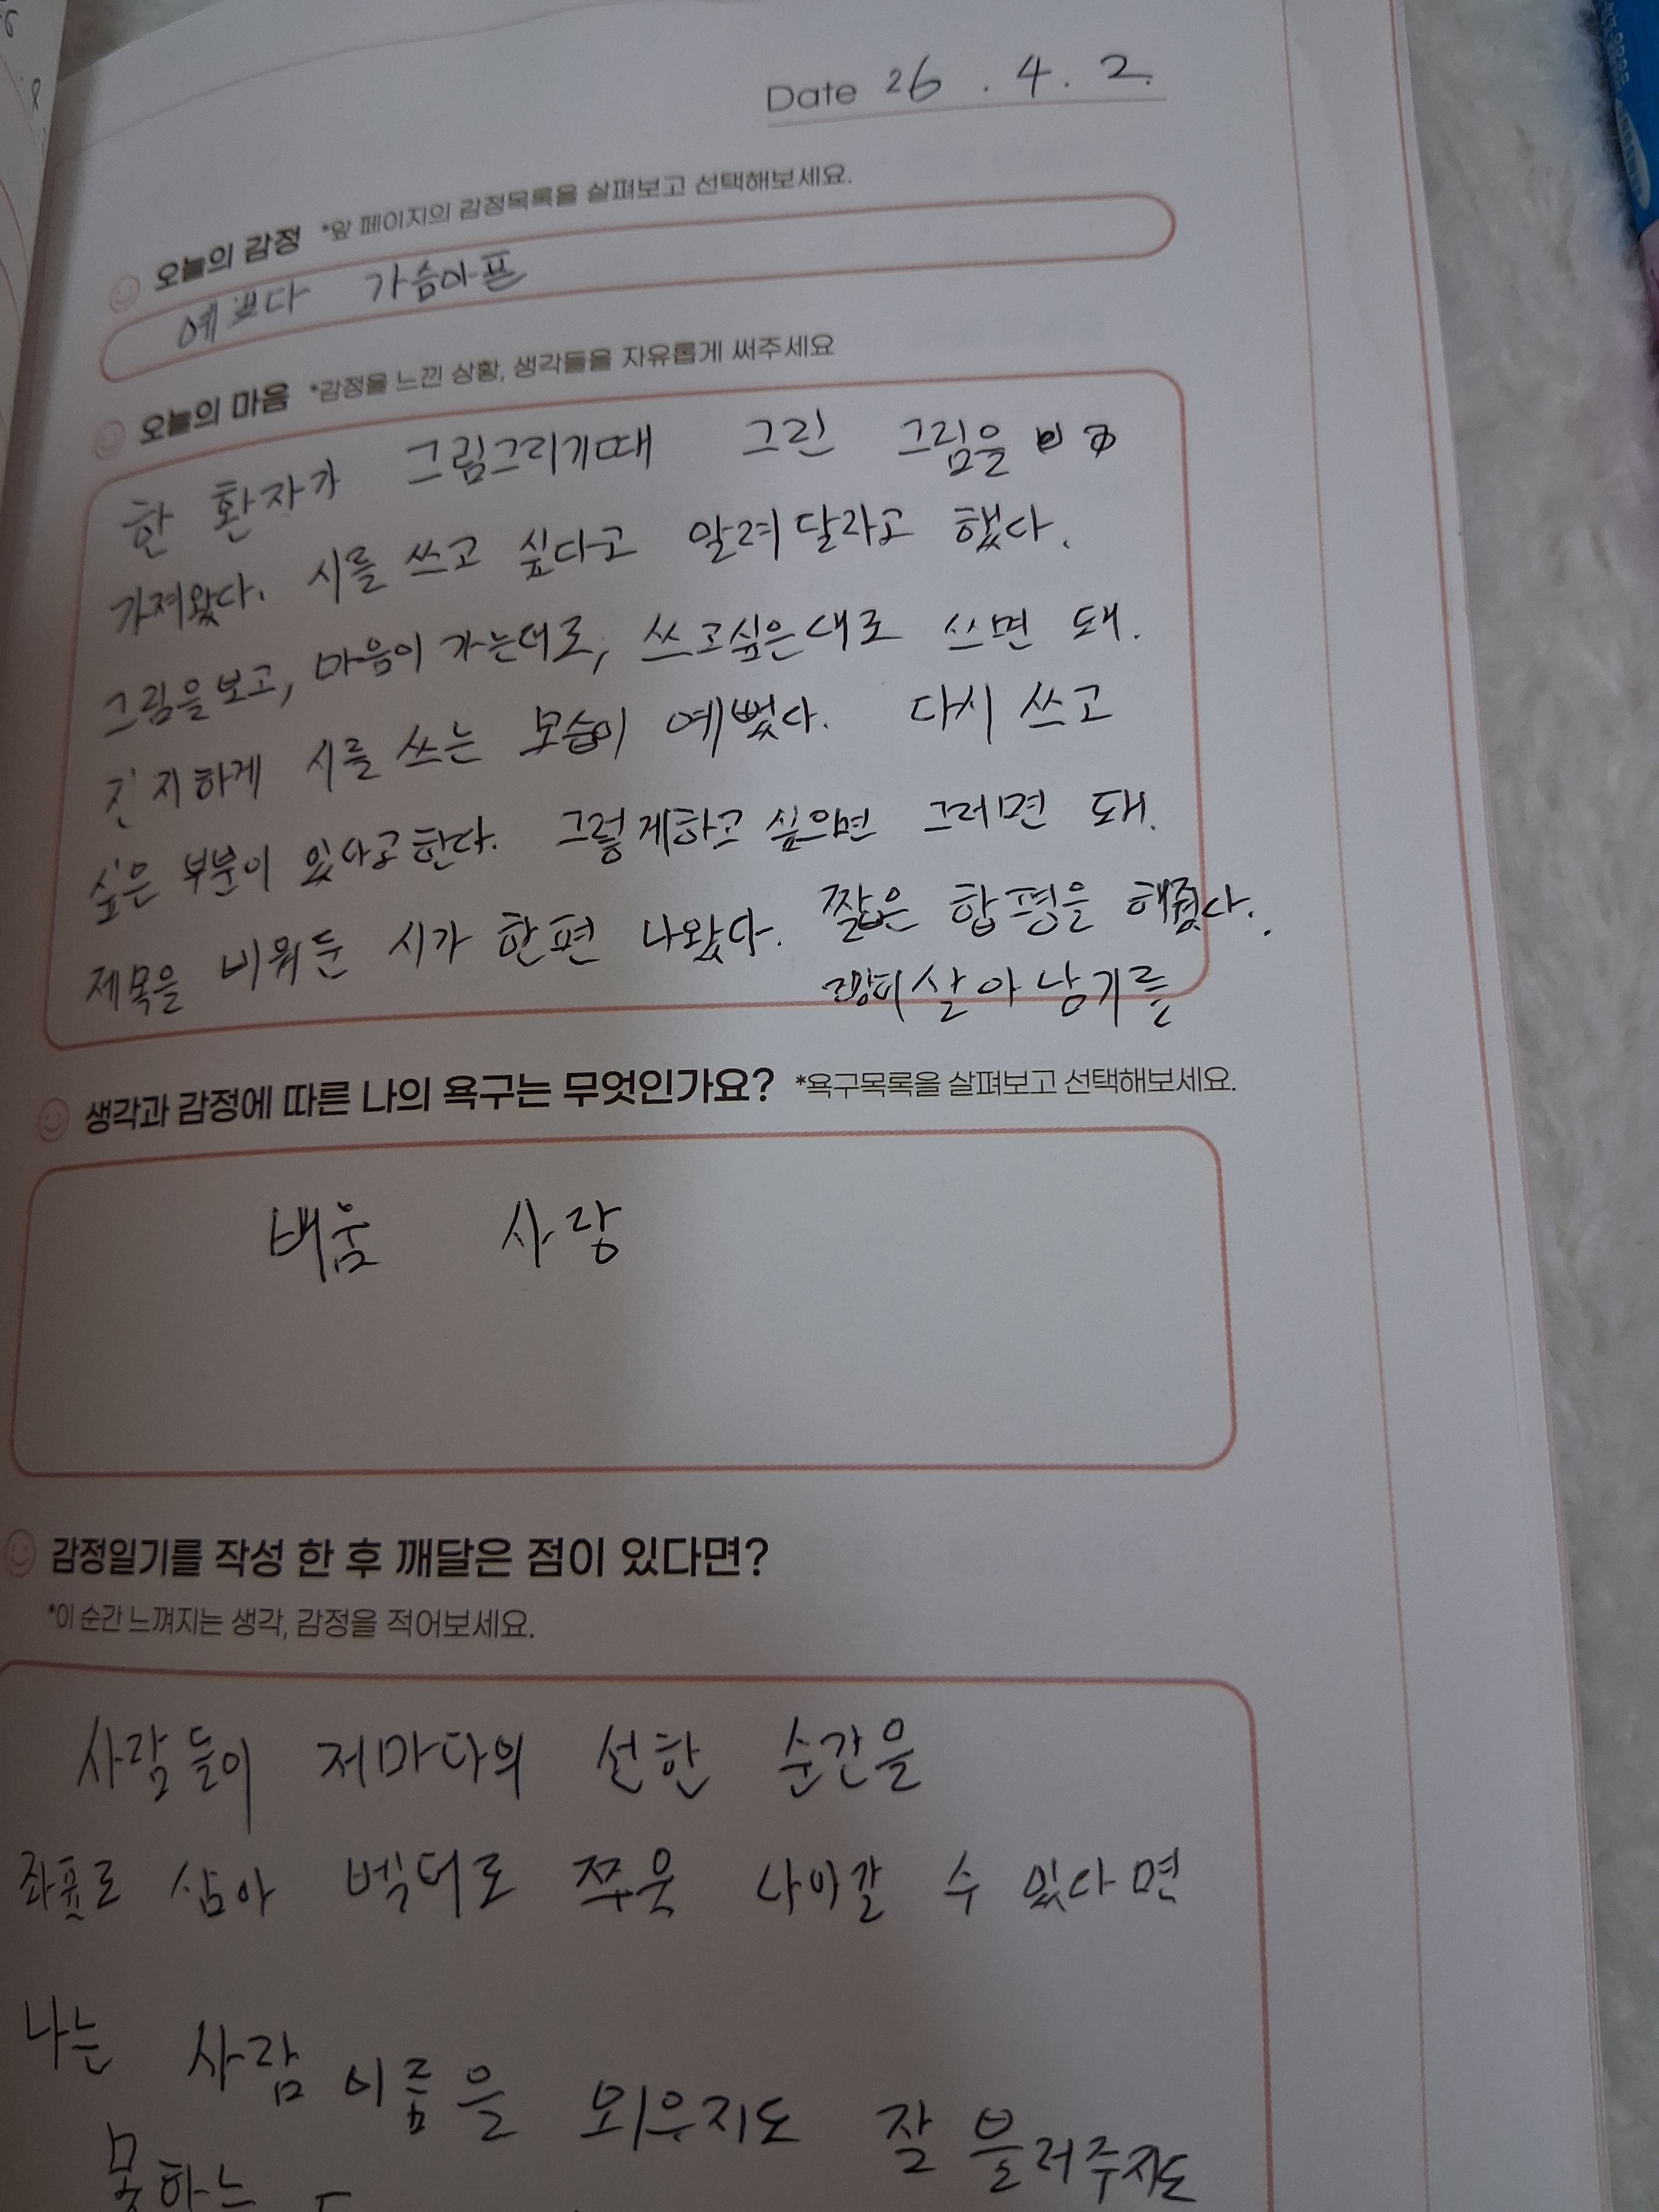 Date 26 . 4 . 2.
오늘의 감정 *앞 페이지의 감정목록을 살펴보고 선택해보세요.
예쁘다 가슴아픈
오늘의 마음 *감정을 느낀 상황, 생각들을 자유롭게 써주세요
한 환자가 그림그리기때 그린 그림을
가져왔다. 시를 쓰고 싶다고 알려달라고 했다.
그림을 보고, 마음이 가는대로, 쓰고싶은대로 쓰면 돼.
진지하게 시를 쓰는 모습이 예뻤다. 다시 쓰고
싶은 부분이 있다고한다. 그렇게하고 싶으면 그러면 돼.
제목을 비워둔 시가 한편 나왔다. 짧은 합평을 해줬다.
살아남기를
생각과 감정에 따른 나의 욕구는 무엇인가요? *욕구목록을 살펴보고 선택해보세요.
배움 사랑
감정일기를 작성 한 후 깨달은 점이 있다면?
*이 순간 느껴지는 생각, 감정을 적어보세요.
사람들이 저마다의 선한 순간을
좌표로 삼아 벡터로 쭈욱 나아갈 수 있다면
나는 사람 이름을 외우지도 잘 불러주지도
못하는